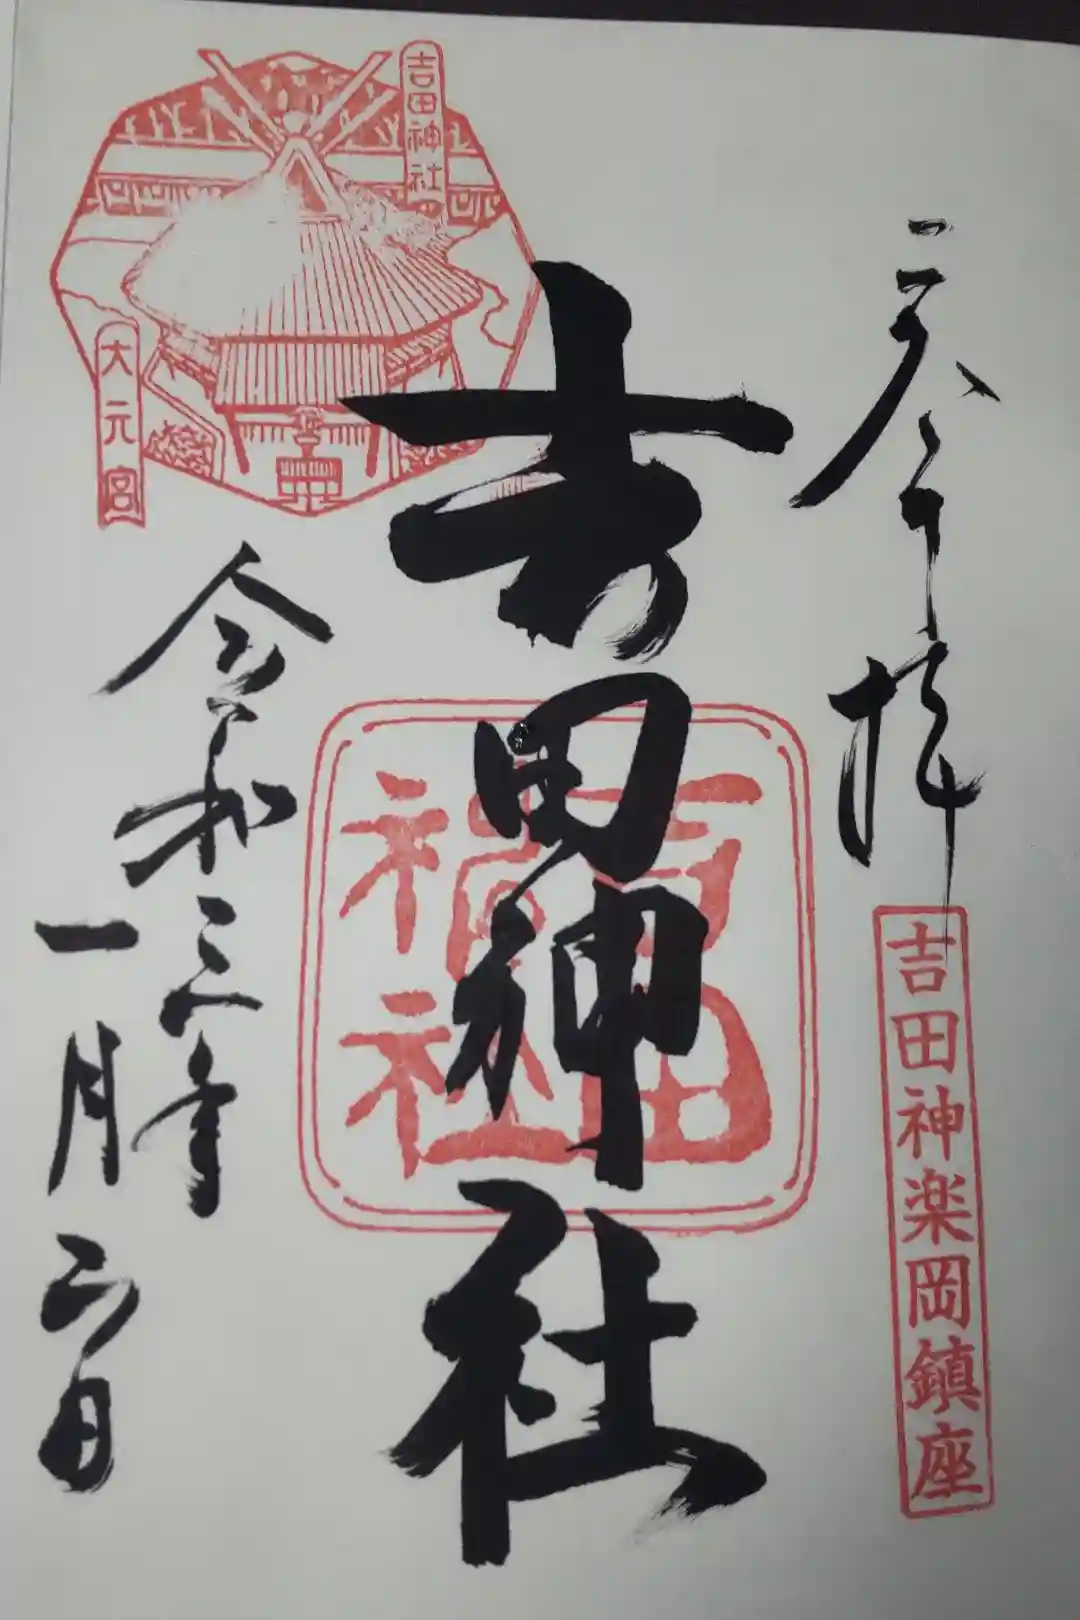 奉拝
吉田神楽岡鎮座
吉田神社
吉田
神社
吉田神社
大元宮
令和三年
一月 日